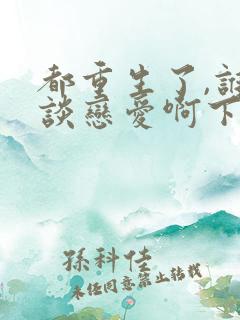 都重生了,誰
談戀愛啊下
孫科佳
未经同意禁止转载